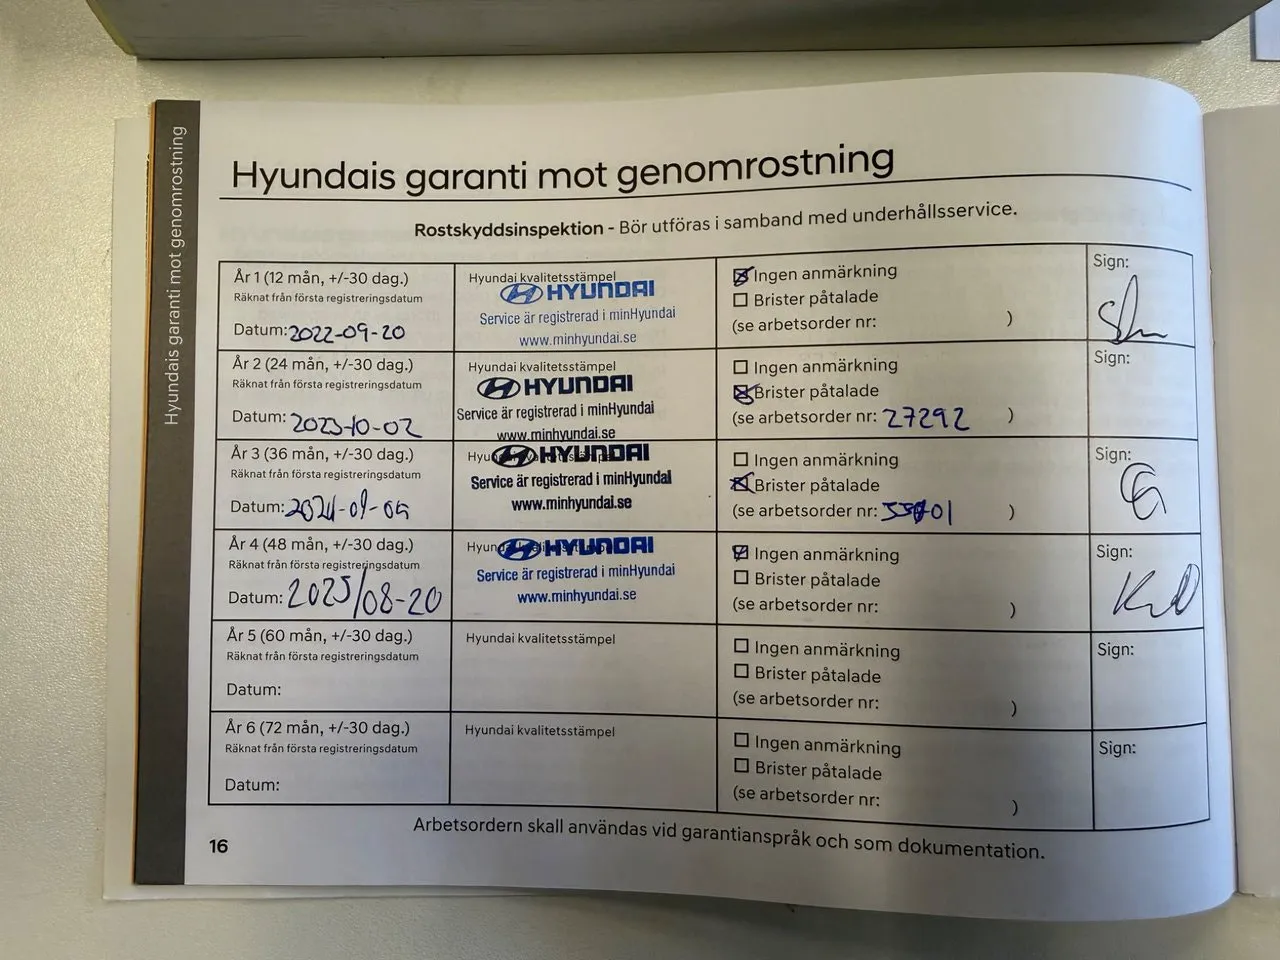 Hyundais garanti mot genomrostning
Hyundais garanti mot genomrostning
Rostskyddsinspektion - Bör utföras i samband med underhållsservice.
År 1 (12 mån, +/-30 dag.)
Räknat från första registreringsdatum
Datum: 2022-09-20
Hyundai kvalitetsstämpel
HYUNDAI
Service är registrerad i minHyundai
www.minhyundai.se
Ingen anmärkning
Brister påtalade
(se arbetsorder nr: )
Sign:
År 2 (24 mån, +/-30 dag.)
Räknat från första registreringsdatum
Datum: 2023-10-02
Hyundai kvalitetsstämpel
HYUNDAI
Service är registrerad i minHyundai
www.minhyundai.se
Ingen anmärkning
Brister påtalade
(se arbetsorder nr: 27292 )
Sign:
År 3 (36 mån, +/-30 dag.)
Räknat från första registreringsdatum
Datum:
HYUNDAI
Service är registrerad i minHyundai
www.minhyundai.se
Ingen anmärkning
Brister påtalade
(se arbetsorder nr: )
Sign:
År 4 (48 mån, +/-30 dag.)
Räknat från första registreringsdatum
Datum: 2025/08-20
HYUNDAI
Service är registrerad i minHyundai
www.minhyundai.se
Ingen anmärkning
Brister påtalade
(se arbetsorder nr: )
Sign:
År 5 (60 mån, +/-30 dag.)
Räknat från första registreringsdatum
Datum:
Hyundai kvalitetsstämpel
Ingen anmärkning
Brister påtalade
(se arbetsorder nr: )
Sign:
År 6 (72 mån, +/-30 dag.)
Räknat från första registreringsdatum
Datum:
Hyundai kvalitetsstämpel
Ingen anmärkning
Brister påtalade
(se arbetsorder nr: )
Sign:
Arbetsordern skall användas vid garantianspråk och som dokumentation.
16